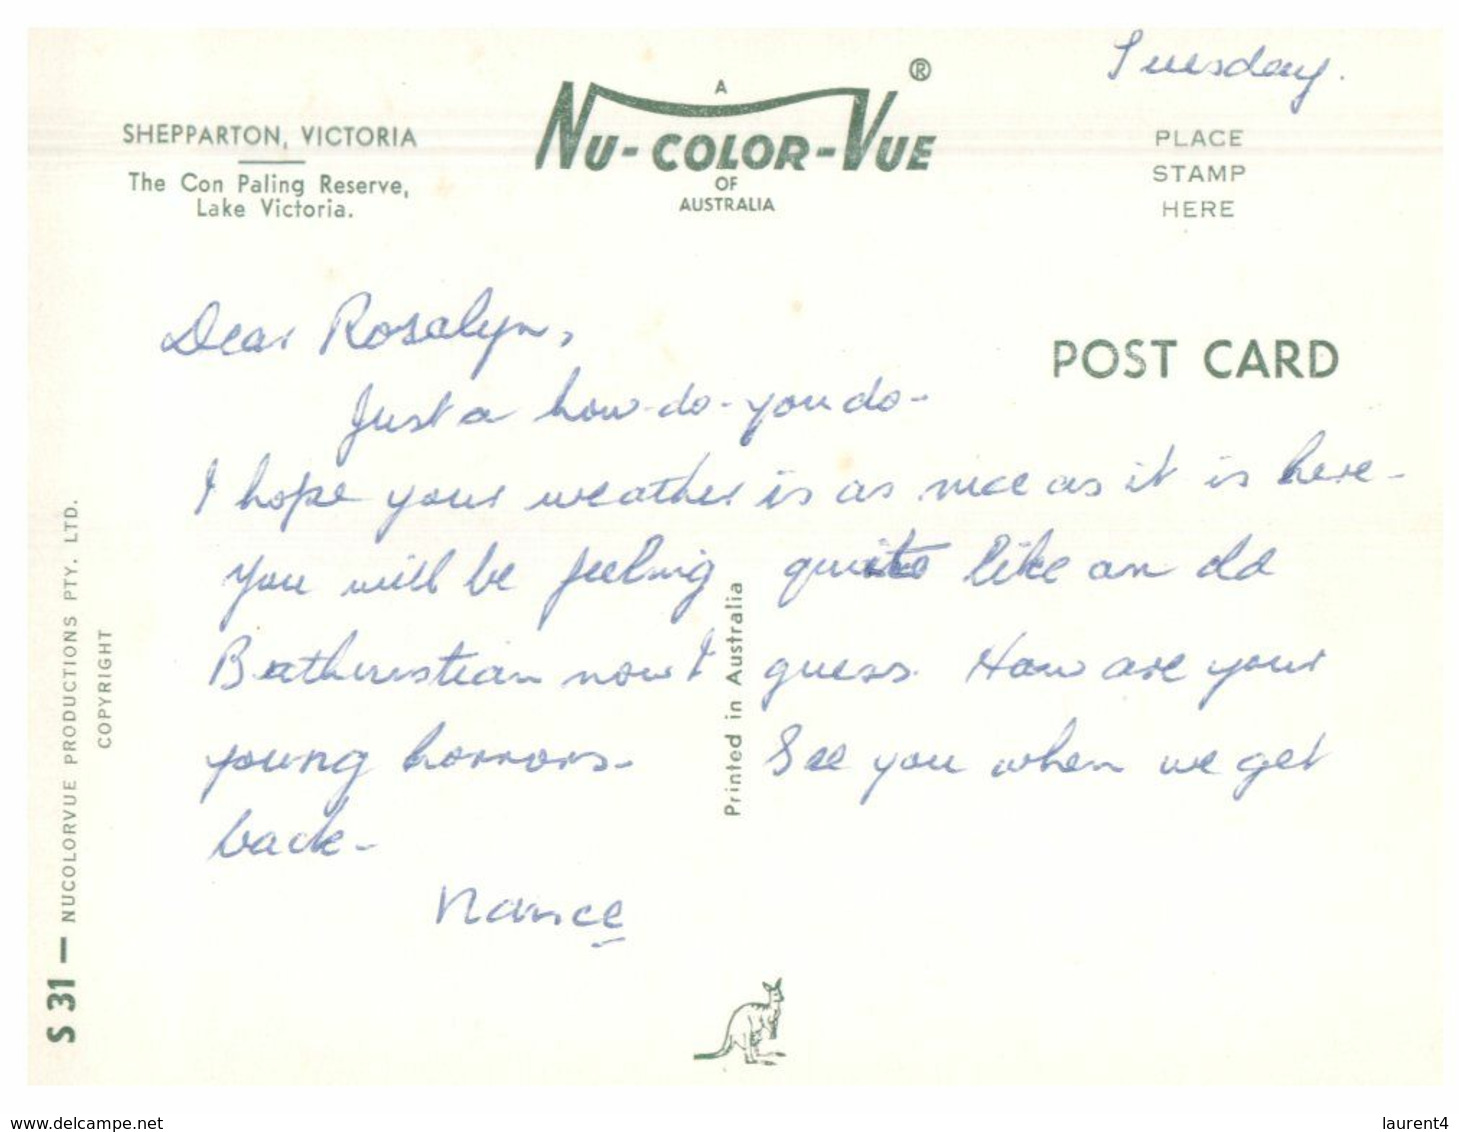 Tuesday.
A
NU-COLOR-VUE ®
OF
AUSTRALIA
SHEPPARTON, VICTORIA
The Con Paling Reserve,
Lake Victoria.
PLACE
STAMP
HERE
POST CARD
Dear Rosalyn,
Just a how-do-you do-
I hope your weather is as nice as it is here-
You will be feeling quite like an old
Bathurstian now I guess. How are your
young horrors- See you when we get
back-
Nance
Printed in Australia
S 31 — NUCOLORVUE PRODUCTIONS PTY. LTD.
COPYRIGHT
www.delcampe.net
laurent4